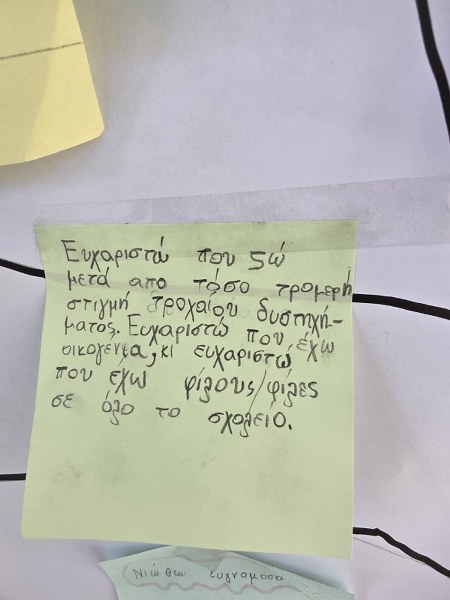 Ευχαριστώ που ζώ
μετά απο τόσο τρομερή
στιγμή τροχαίου δυστηχή-
ματος. Ευχαριστώ που έχω
οικογένια, κι ευχαριστώ
που εχω φίλους/φιλες
σε όλο το σχολείο.
Νιώθω ευγνομοσα